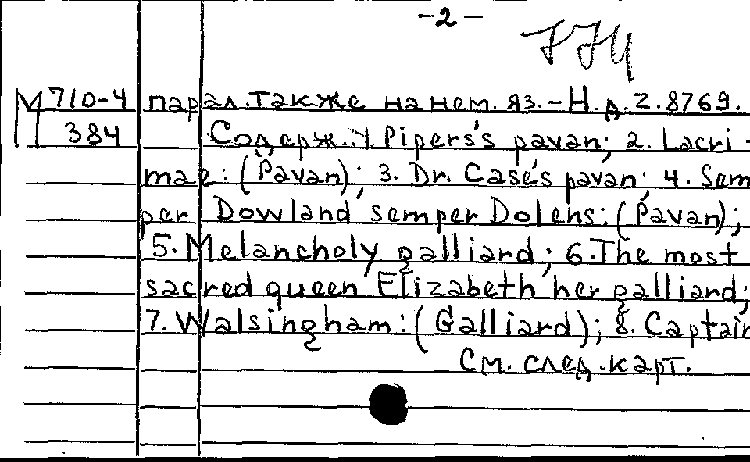 -2-
774
М 710-4 парал. также на нем. яз. - Н.д. 2.8769.
384 Содерж.: 1 Pipers's pavan; 2. Lacri-
mae: (Pavan); 3. Dr. Case's pavan; 4. Sem
per Dowland semper Dolens: (Pavan);
5. Melancholy galliard; 6. The most
sacred queen Elizabeth her galliard;
7. Walsingham: (Galliard); 8. Captain
См. след. карт.